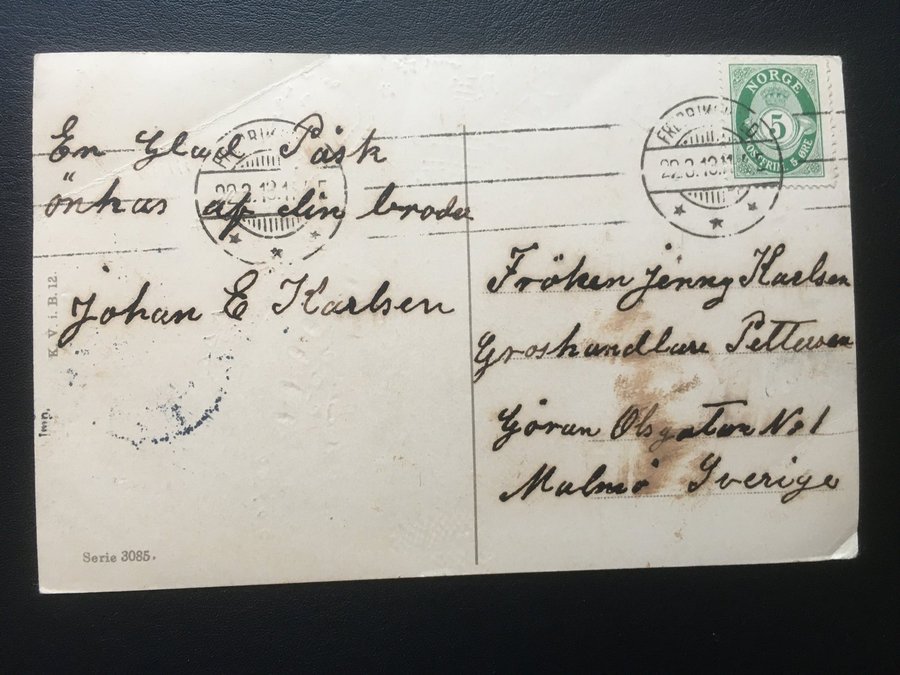 En Glad Påsk
önkas af din broder
Johan E Karlsen
K. V. i. B. 12.
Imp.
Serie 3085.
NORGE
5
POSTFRIM. 5 ØRE
22.3.13.
22.3.13.11
Fröken Jenny Karlsen
Groshandlare Pettersen
Göran Olsgatan No 1
Malmö Sverige